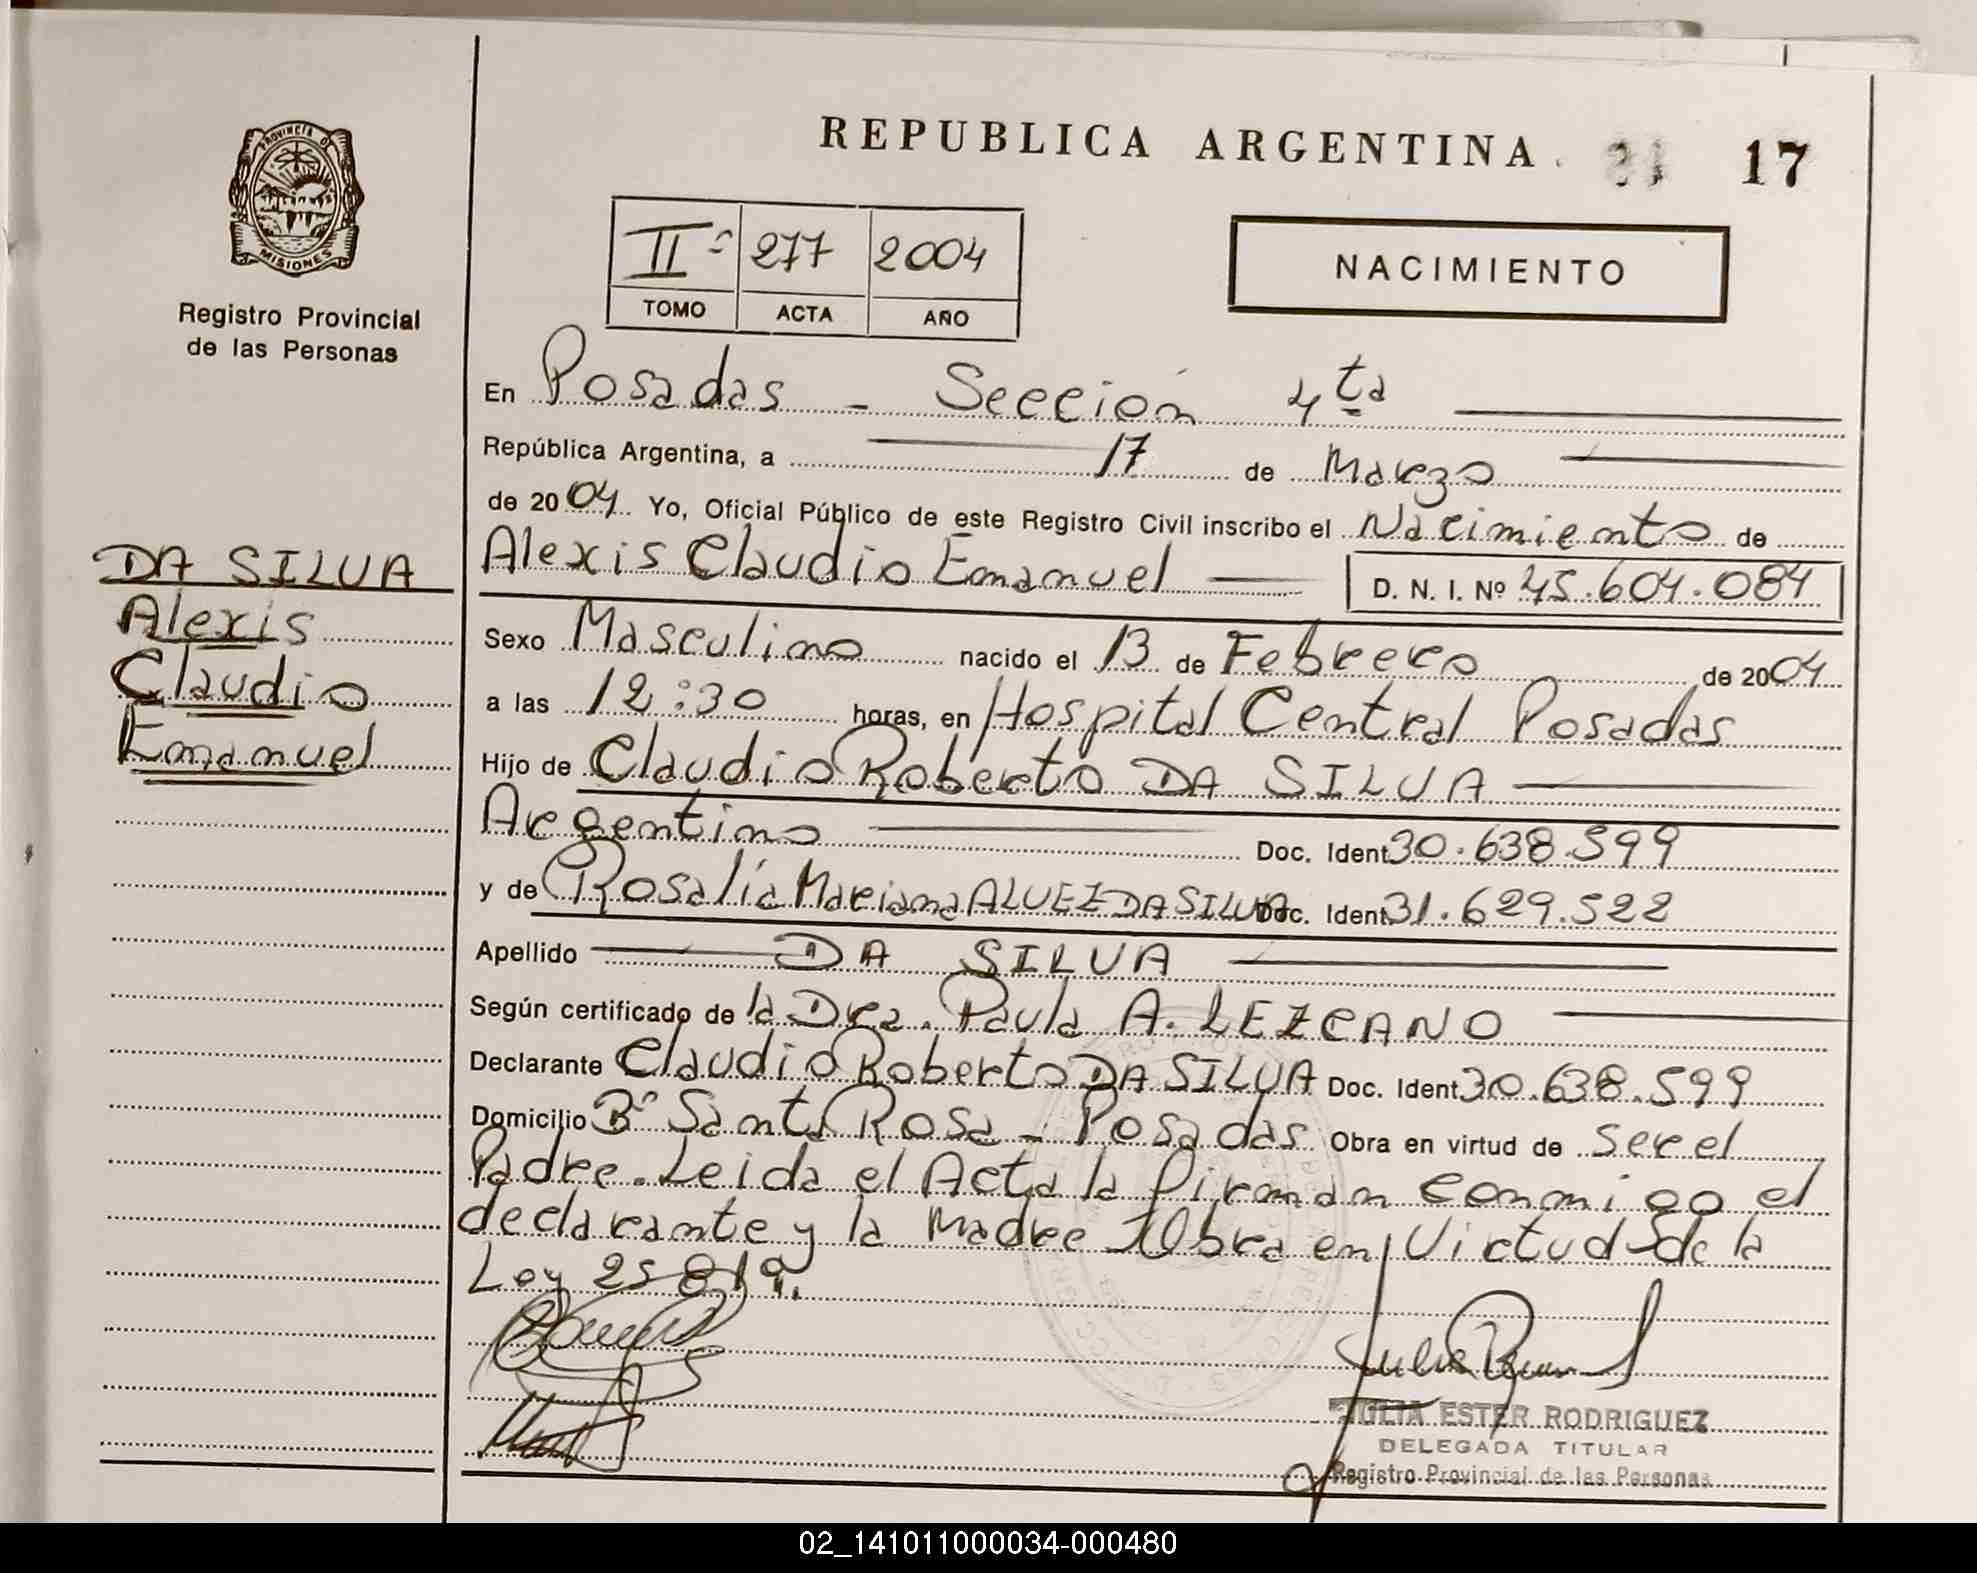 PROVINCIA DE
MISIONES
Registro Provincial
de las Personas
DA SILVA
Alexis
Claudio
Emanuel
REPUBLICA ARGENTINA. 17
II º 277 2004
TOMO ACTA AÑO
NACIMIENTO
En Posadas - Sección 4ta
República Argentina, a 17 de Marzo
de 2004 Yo, Oficial Público de este Registro Civil inscribo el Nacimiento de
Alexis Claudio Emanuel D. N. I. Nº 45.604.084
Sexo Masculino nacido el 13 de Febrero de 2004
a las 12:30 horas, en Hospital Central Posadas
Hijo de Claudio Roberto DA SILVA
Argentino Doc. Ident 30.638.599
y de Rosalía Mariana ALVEZ DA SILVA Doc. Ident 31.629.522
Apellido DA SILVA
Según certificado de la Dra. Paula A. LEZCANO
Declarante Claudio Roberto DA SILVA Doc. Ident 30.638.599
Domicilio Bº Santa Rosa - Posadas Obra en virtud de ser el
Padre. Leida el Acta la firman conmigo el
declarante y la Madre Obra en Virtud de la
Ley 25819.
JULIA ESTER RODRIGUEZ
DELEGADA TITULAR
Registro Provincial de las Personas
02_141011000034-000480